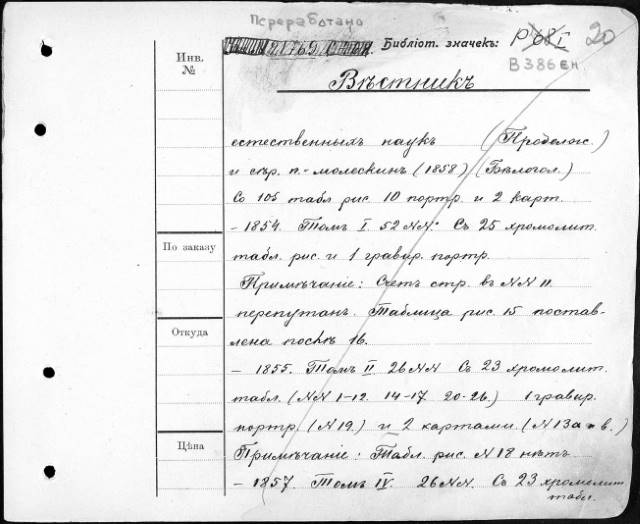 Переработано
Библіот. значекъ: Р 68 I 20
В 386 ЕН.
Инв.
№
Вѣстникъ
естественныхъ наукъ (Продолж.)
(1858)
Со 105 табл рис 10 портр. и 2 карт.
– 1854. Томъ I. 52 NN: Съ 25 хромолит.
По заказу
табл. рис. и 1 гравир. портр.
Примѣчаніе: Счетъ стр. въ NN 11
перепутанъ. Таблица рис. 15 постав-
Откуда
лена послѣ 16.
– 1855. Томъ II 26 NN Съ 23 хромолит.
табл. (NN 1–12. 14–17. 20–26.) 1 гравир.
портр. (N 19.) и 2 картами. (N 13а и в.)
Цѣна
Примѣчаніе: Табл. рис. N 18 нѣтъ
– 1857. Томъ IV. 26 NN. Съ 23 хромолит
табл.